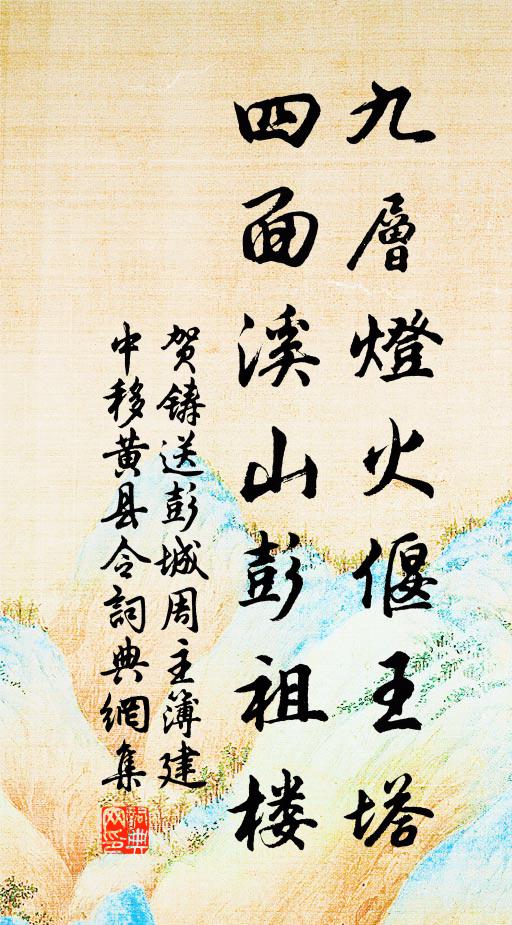 九層燈火偃王塔
四面溪山彭祖楼
贺铸送彭城周主簿建
中移黄县令詞典網集
詞典網印